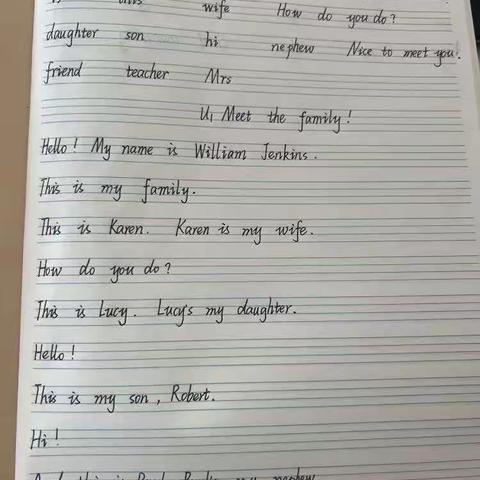 wife How do you do?
daughter son hi nephew Nice to meet you.
friend teacher Mrs
U1 Meet the family!
Hello! My name is William Jenkins.
This is my family.
This is Karen. Karen is my wife.
How do you do?
This is Lucy. Lucy's my daughter.
Hello!
This is my son, Robert.
Hi!